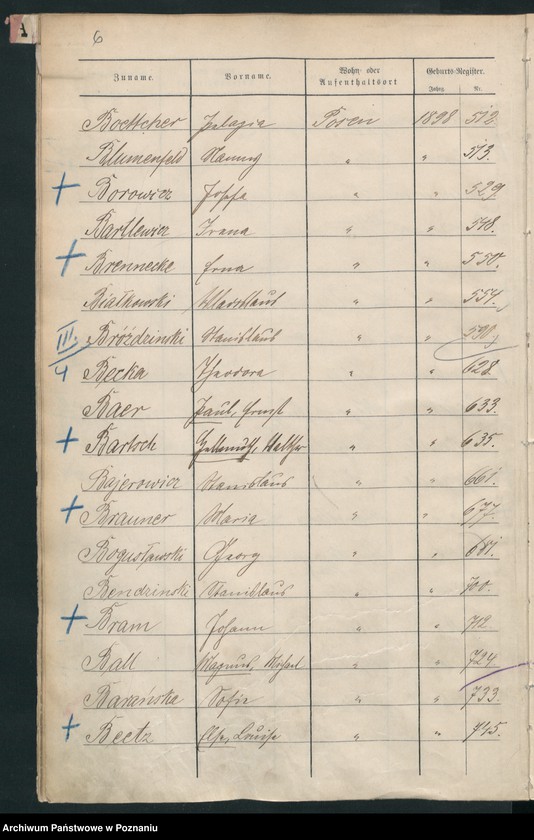 A
6
Zuname. Vorname. Wohn- oder Aufenthaltsort Geburts-Register.
Jahrg. Nr.
Boettcher Pelagia Posen 1898 512.
Blumenfeld " " 513.
+ Borowicz Josefa " " 529.
Bartlewicz Irena " " 548.
+ Brennecke Erna " " 550.
Białkowski Wladislaus " " 554.
III Bróździnski Stanislaus " " 590.
4 Becka Theodora " " 628.
Baer Paul, Ernst " " 633.
+ Bartsch Hellmuth, Walther " " 635.
Bajerowicz Stanislaus " " 661.
+ Brauner Maria " " 677.
Bogusławski Georg " " 681.
Bendzinski Stanislaus " " 700.
+ Bram Johann " " 712
Ball Magnus, " " 724
Barańska Sofie " " 733.
+ Beetz Else, Louise " " 745.
Archiwum Państwowe w Poznaniu